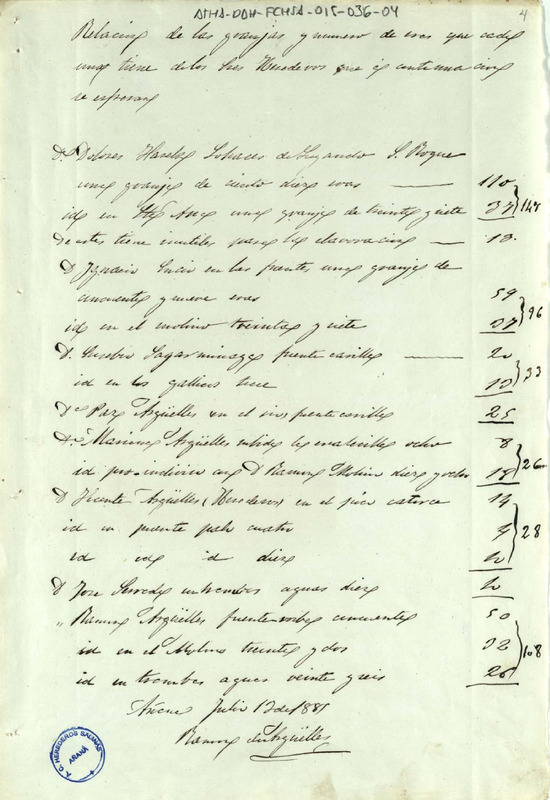 ATHA-DAH-FCHSA-015-036-04
4
Relacion de las granjas y numero de eras que cada
una tiene de los Sres Herederos que á continuacion
se espresan
Dª Dolores de S. Roque
una granja de ciento diez eras — 110
id en Stª Ana una granja de treinta y siete 37 } 147
de estas tiene inutiles para la elavoracion — 13.
D Ygnacio en las fuentes una granja de
cincuenta y nueve eras 59
id en el molino treinta y siete 37 } 96
D. Eusebio Sagarminaga fuente carilles — 20
id en los gallicos trece 13 } 33
Dª Paz Argüelles en el fuente carilles 25
Dª Argüelles subida las ocho 8
id pro-indiviso con D Ramon Molino diez y ocho 18 } 26
D Vicente Argüelles (Herederos) en el pico catorce 14
id en puente palo cuatro 4 } 28
id id id diez 10
D Jose entrambas aguas diez 10
" Ramon Argüelles fuente arriba cincuenta 50
id en el Molino treinta y dos 32 } 108
id entrambas aguas veinte y seis 26
Añana Julio 12 de 1881
Ramon de Argüelles
T. C. HEREDEROS SALINAS
ARAKA